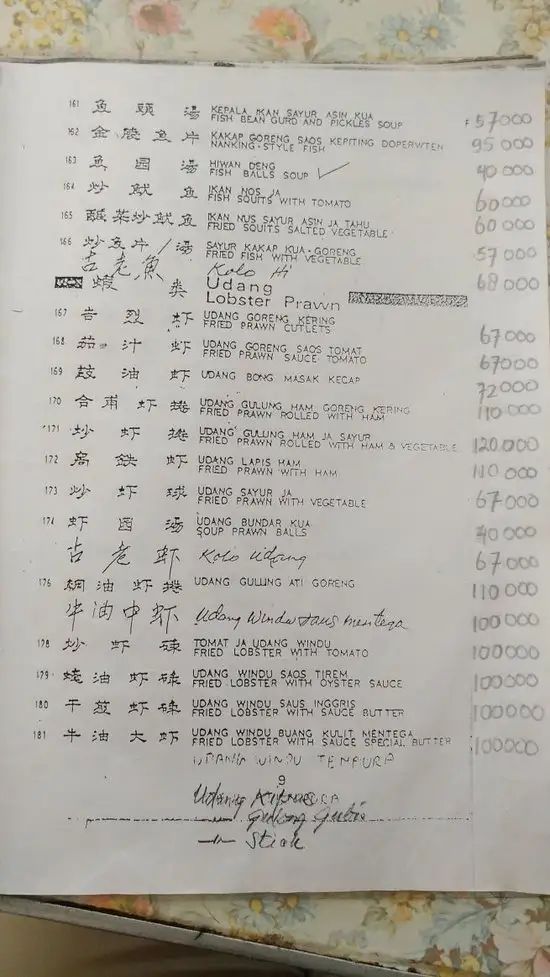 161 魚 頭 湯 KEPALA IKAN SAYUR ASIN KUA 57000
FISH BEAN GURD AND PICKLES SOUP
162 金 陵 魚 片 KAKAP GORENG SAOS KEPITING DOPERWTEN 95000
NANKING-STYLE FISH
163 魚 园 湯 HIWAN DENG 40000
FISH BALLS SOUP
164 炒 魷 魚 IKAN NOS JA 60000
FISH SQUITS WITH TOMATO
165 鹹菜炒魷魚 IKAN NUS SAYUR ASIN JA TAHU 60000
FRIED SQUITS SALTED VEGETABLE
166 炒魚片/湯 SAYUR KAKAP KUA-GORENG 57000
FRIED FISH WITH VEGETABLE
古老魚 Kolo Hi 68000
蝦 类 Udang
Lobster Prawn
167 吉 烈 虾 UDANG GORENG KERING 67000
FRIED PRAWN CUTLETS
168 茄 汁 虾 UDANG GORENG SAOS TOMAT 67000
FRIED PRAWN SAUCE TOMATO
169 豉 油 虾 UDANG BONG MASAK KECAP 72000
170 合 甫 虾 捲 UDANG GULUNG HAM GORENG KERING 110000
FRIED PRAWN ROLLED WITH HAM
171 炒 虾 捲 UDANG GULUNG HAM JA SAYUR 120.000
FRIED PRAWN ROLLED WITH HAM & VEGETABLE
172 窩 鉄 虾 UDANG LAPIS HAM 110000
FRIED PRAWN WITH HAM
173 炒 虾 球 UDANG SAYUR JA 67000
FRIED PRAWN WITH VEGETABLE
174 虾 园 湯 UDANG BUNDAR KUA 40000
SOUP PRAWN BALLS
古 老 虾 Kolo Udang 67000
176 油 虾 捲 UDANG GULUNG ATI GORENG 110000
牛油中虾 Udang Windu saus mentega 100000
178 炒 虾 碌 TOMAT JA UDANG WINDU 100000
FRIED LOBSTER WITH TOMATO
179 蠔 油 虾 碌 UDANG WINDU SAOS TIREM 100000
FRIED LOBSTER WITH OYSTER SAUCE
180 干 煎 虾 碌 UDANG WINDU SAUS INGGRIS 100000
FRIED LOBSTER WITH SAUCE BUTTER
181 牛 油 大 虾 UDANG WINDU BUANG KULIT MENTEGA 100000
FRIED LOBSTER WITH SAUCE SPECIAL BUTTER
UDANG WINDU TEMPURA
9
Udang